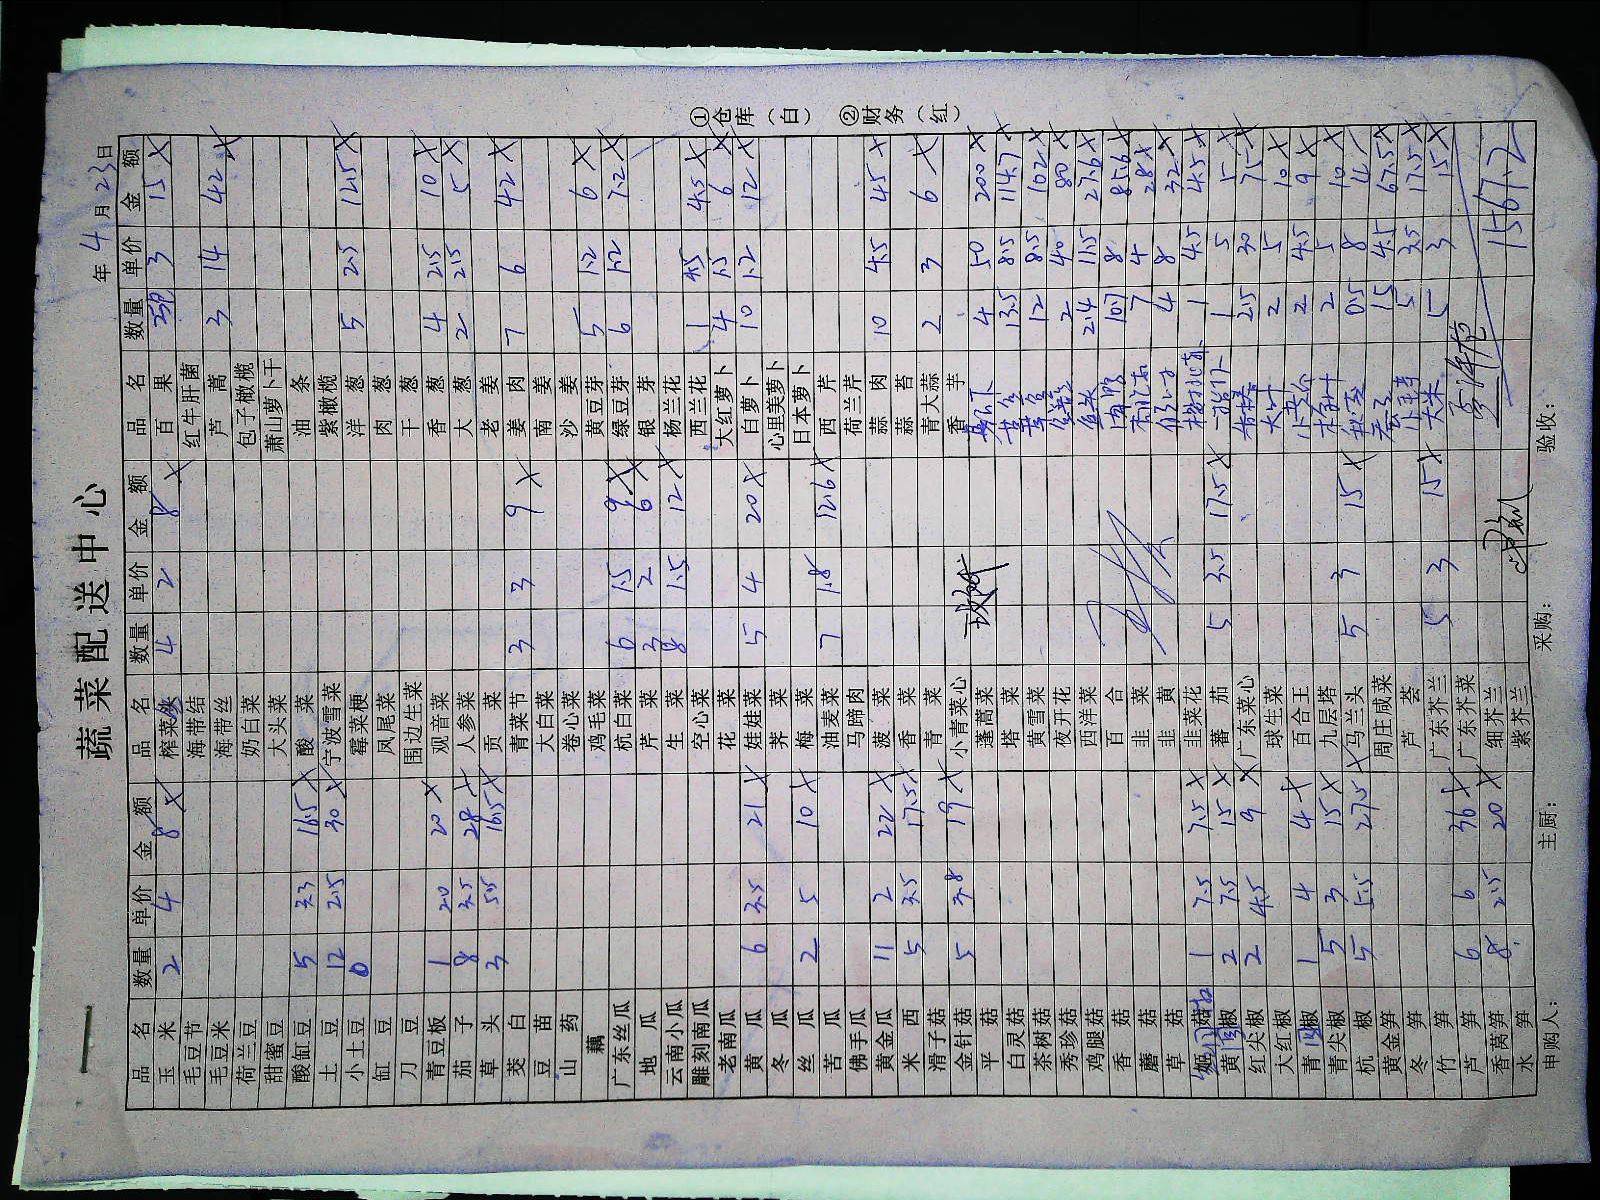 蔬菜配送中心
年 4 月 23 日
品名 数量 单价 金额 品名 数量 单价 金额 品名 数量 单价 金额
玉米 2 4 8 榨菜 4 2 8 百果 3 15
毛豆节 海带结 红牛肝菌
毛豆米 海带丝 芦蒿 3 14 42
荷兰豆 奶白菜 包子橄榄
甜蜜豆 大头菜 萧山萝卜干
酸缸豆 5 3.3 16.5 酸菜 油条
土豆 12 2.5 30 宁波雪菜 紫橄榄
小土豆 霉菜梗 洋葱 5 2.5 12.5
缸豆 凤尾菜 肉葱
刀豆 围边生菜 干葱
青豆板 1 20 20 观音菜 香葱 4 2.5 10
茄子 8 3.5 28 人参菜 大葱 2 2.5 5
草头 3 5.5 16.5 贡菜 老姜
茭白 青菜节 3 3 9 姜肉 7 6 42
豆苗 大白菜 南姜
山药 卷心菜 沙姜
藕 鸡毛菜 黄豆芽 5 1.2 6
广东丝瓜 杭白菜 6 1.5 9 绿豆芽 6 1.2 7.2
地瓜 芹菜 3 2 6 银芽
云南小瓜 生菜 8 1.5 12 杨兰花
雕刻南瓜 空心菜 西兰花 1 4.5 4.5
老南瓜 花菜 大红萝卜 4 1.5 6
黄瓜 6 3.5 21 娃娃菜 5 4 20 白萝卜 10 1.2 12
冬瓜 荠菜 心里美萝卜
丝瓜 2 5 10 梅菜 日本萝卜
苦瓜 油麦菜 7 1.8 12.6 西芹
佛手瓜 马蹄肉 荷兰芹
黄金瓜 11 2 22 菠菜 蒜肉 10 4.5 45
米西 5 3.5 17.5 香菜 蒜苔
滑子菇 青菜 青大蒜 2 3 6
金针菇 5 3.8 19 小青菜心 香芋
平菇 蓬蒿菜 4 50 200
白灵菇 塔菜 13.5 8.5 114.7
茶树菇 黄雪菜 12 8.5 102
秀珍菇 夜开花 2 40 80
鸡腿菇 西洋菜 2.4 11.5 27.6
香菇 百合 10.7 8 85.6
蘑菇 韭菜 7 4 28
草菇 韭黄 4 8 32
姬菇 1 7.5 7.5 韭菜花 1 4.5 4.5
黄椒 2 7.5 15 蕃茄 5 3.5 17.5 1 5 5
红尖椒 2 4.5 9 广东菜心 2.5 30 75
大红椒 球生菜 2 5 10
青椒 1 4 4 百合王 2 4.5 9
青尖椒 5 3 15 九层塔 2 5 10
杭椒 5 5.5 27.5 马兰头 5 3 15 0.5 8 4
黄金笋 周庄咸菜 15 4.5 67.5
冬笋 芦荟 5 3.5 17.5
竹笋 广东芥兰 5 3 15 大米 5 3 15
芦笋 6 6 36 广东芥菜
香莴笋 8 2.5 20 细芥兰
水笋 紫芥兰 1567.2
申购人: 主厨: 采购: 验收:
①仓库（白） ②财务（红）